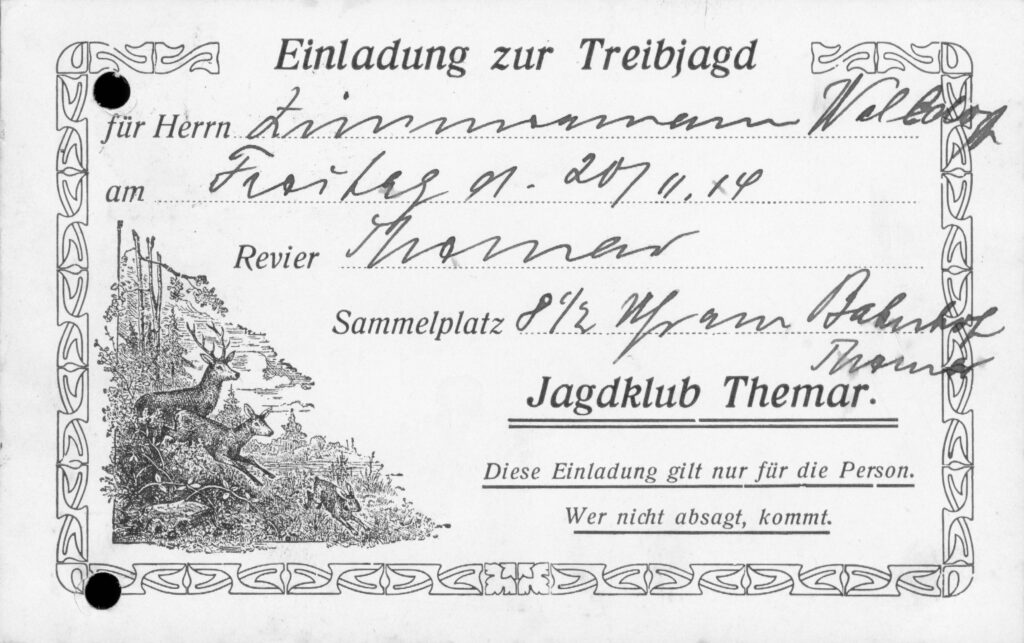 Einladung zur Treibjagd
für Herrn Zimmermann Walldorf
am Freitag d. 20/11.14
Revier Themar
Sammelplatz 8 1/2 Uhr am Bahnhof
Themar
Jagdklub Themar.
Diese Einladung gilt nur für die Person.
Wer nicht absagt, kommt.